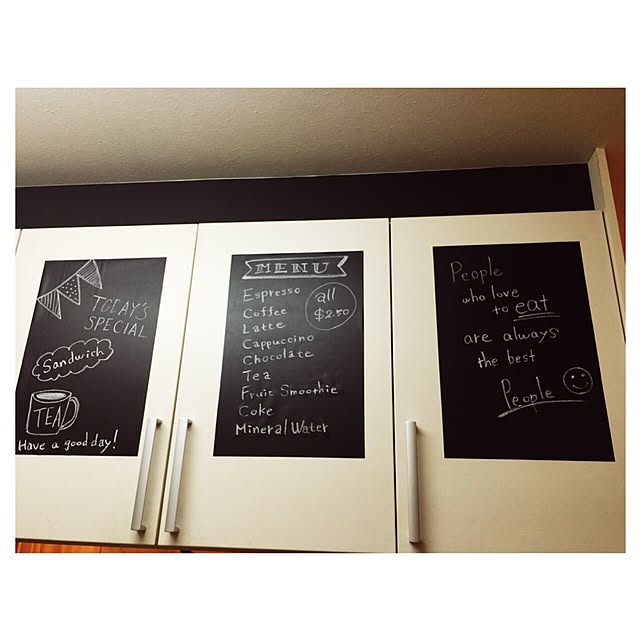 TODAY'S
SPECIAL
Sandwich
TEA
Have a good day!
MENU
Espresso
Coffee
Latte
Cappuccino
Chocolate
Tea
Fruit Smoothie
Coke
Mineral Water
all
$2.50
People
who love
to eat
are always
the best
People